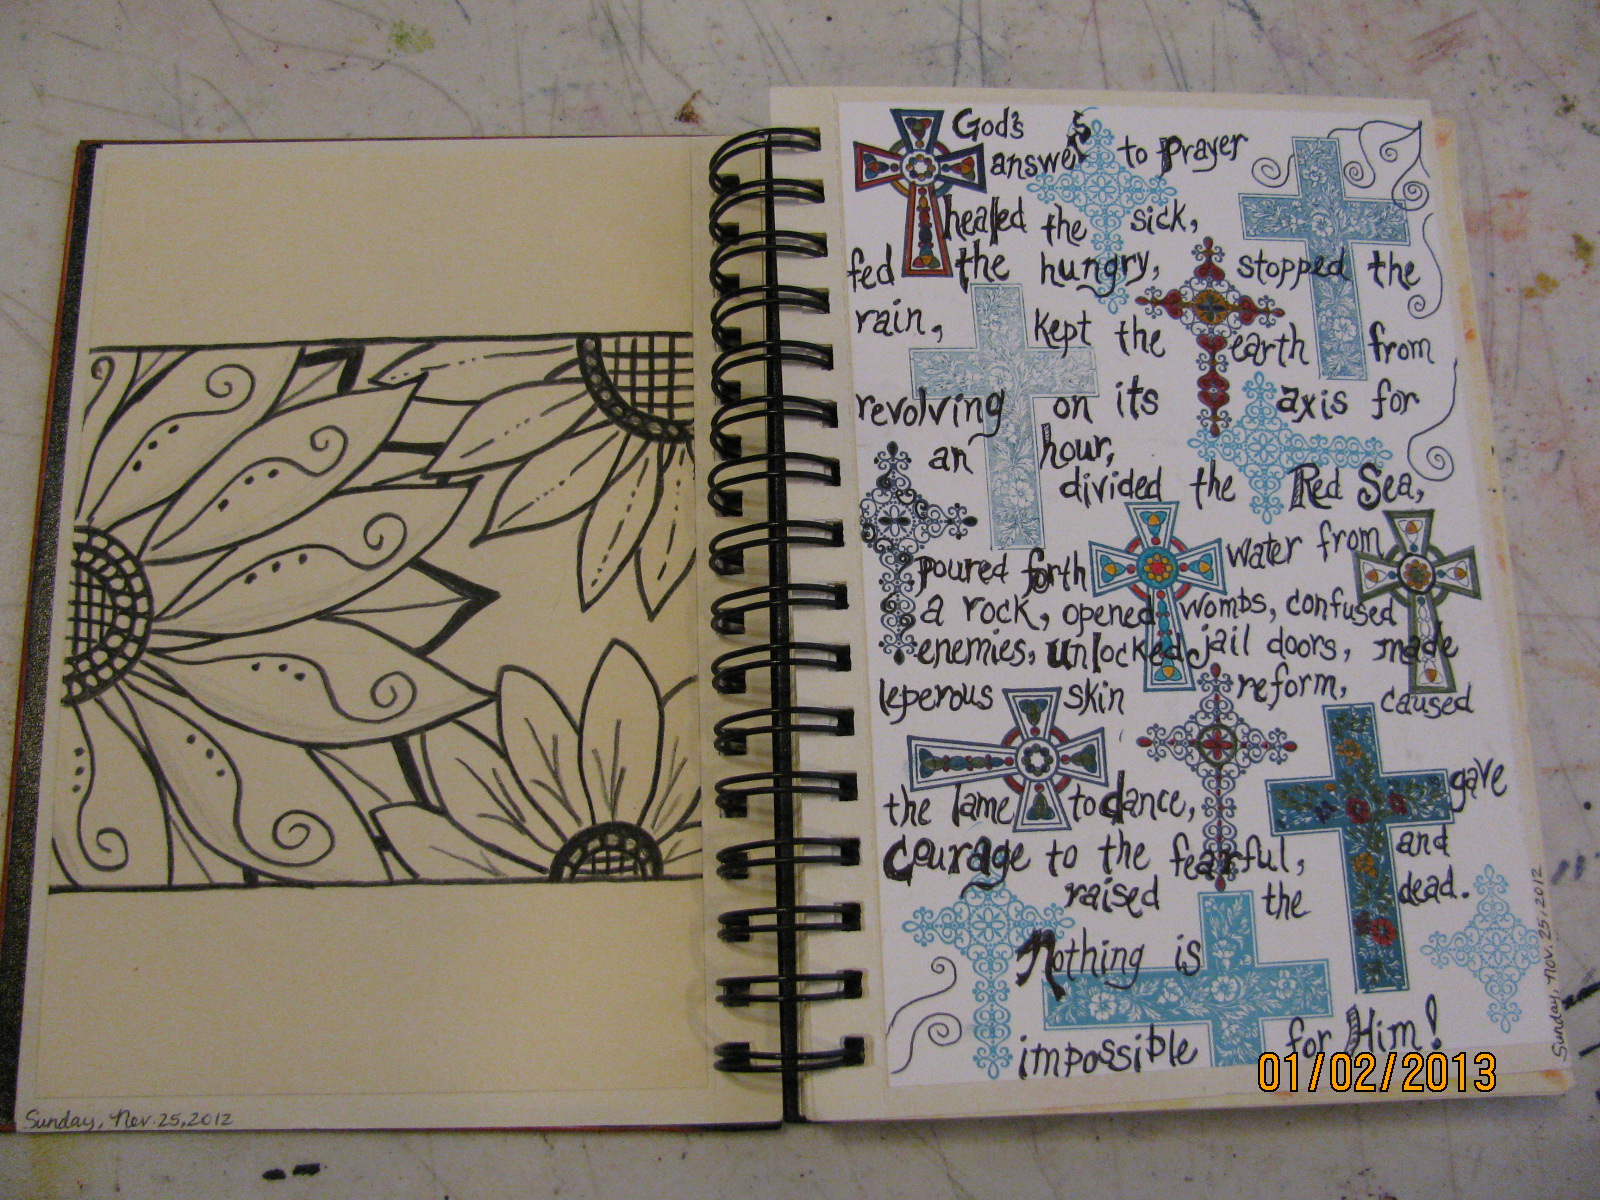 God's
answers to prayer
healed the sick,
fed the hungry, stopped the
rain, kept the earth from
revolving on its axis for
an hour,
divided the Red Sea,
poured forth water from
a rock, opened wombs, confused
enemies, unlocked jail doors, made
leperous skin reform, caused
the lame to dance, gave
courage to the fearful, and
raised the dead.
Nothing is
impossible for Him!
Sunday, Nov. 25, 2012
Sunday, Nov. 25, 2012
01/02/2013